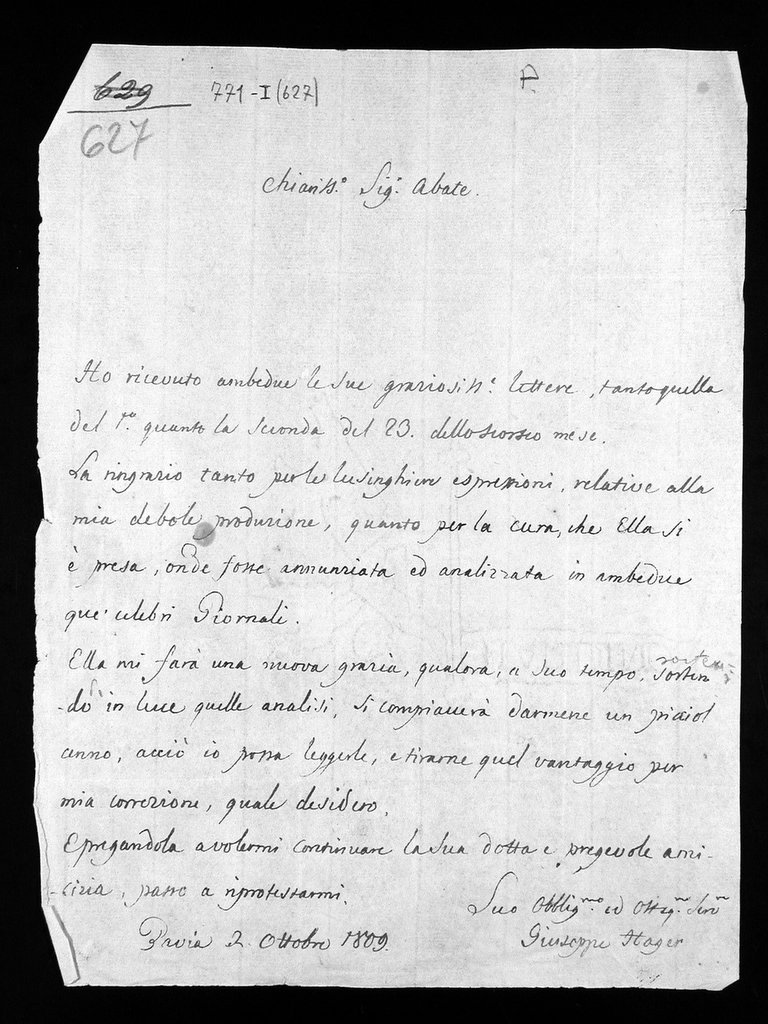 629
771-I (627)
P.
627
Chiariss.º Sig.r Abate.
Ho ricevuto ambedue le sue graziosiss.e lettere, tanto quella
del 1.mo quanto la seconda del 23. dello scorso mese.
La ringrazio tanto per le lusinghiere espressioni, relative alla
mia debole produzione, quanto per la cura, che Ella si
è presa, onde fosse annunziata ed analizzata in ambedue
que' celebri Giornali.
Ella mi farà una nuova grazia, qualora, a suo tempo, sorten
-do in luce quelle analisi, si compiacerà darmene un picciol
cenno, acciò io possa leggerle, e tirarne quel vantaggio per
mia correzione, quale desidero.
E pregandola a volermi continuare la sua dotta e pregevole ami-
-cizia, passo a riprotestarmi.
Suo Obblig.mo ed Osseq.mo Serv.re
Pavia 2. Ottobre 1809.
Giuseppe Hager